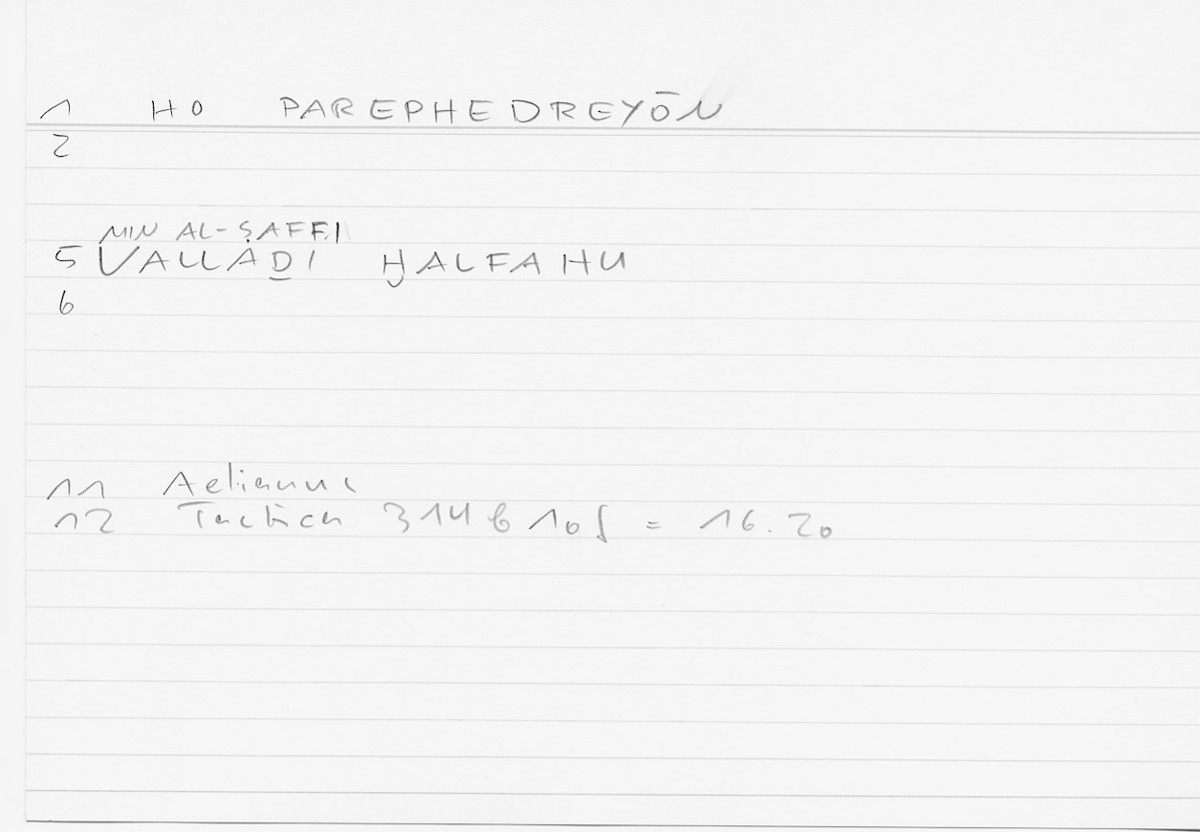 1 HO PAREPHEDREYŌN
2
MIN AL-ṢAFFI
5 VALLAḎI ḪALFAHU
6
11 Aelianus
12 Tactica 314 b 10 f = 16.20